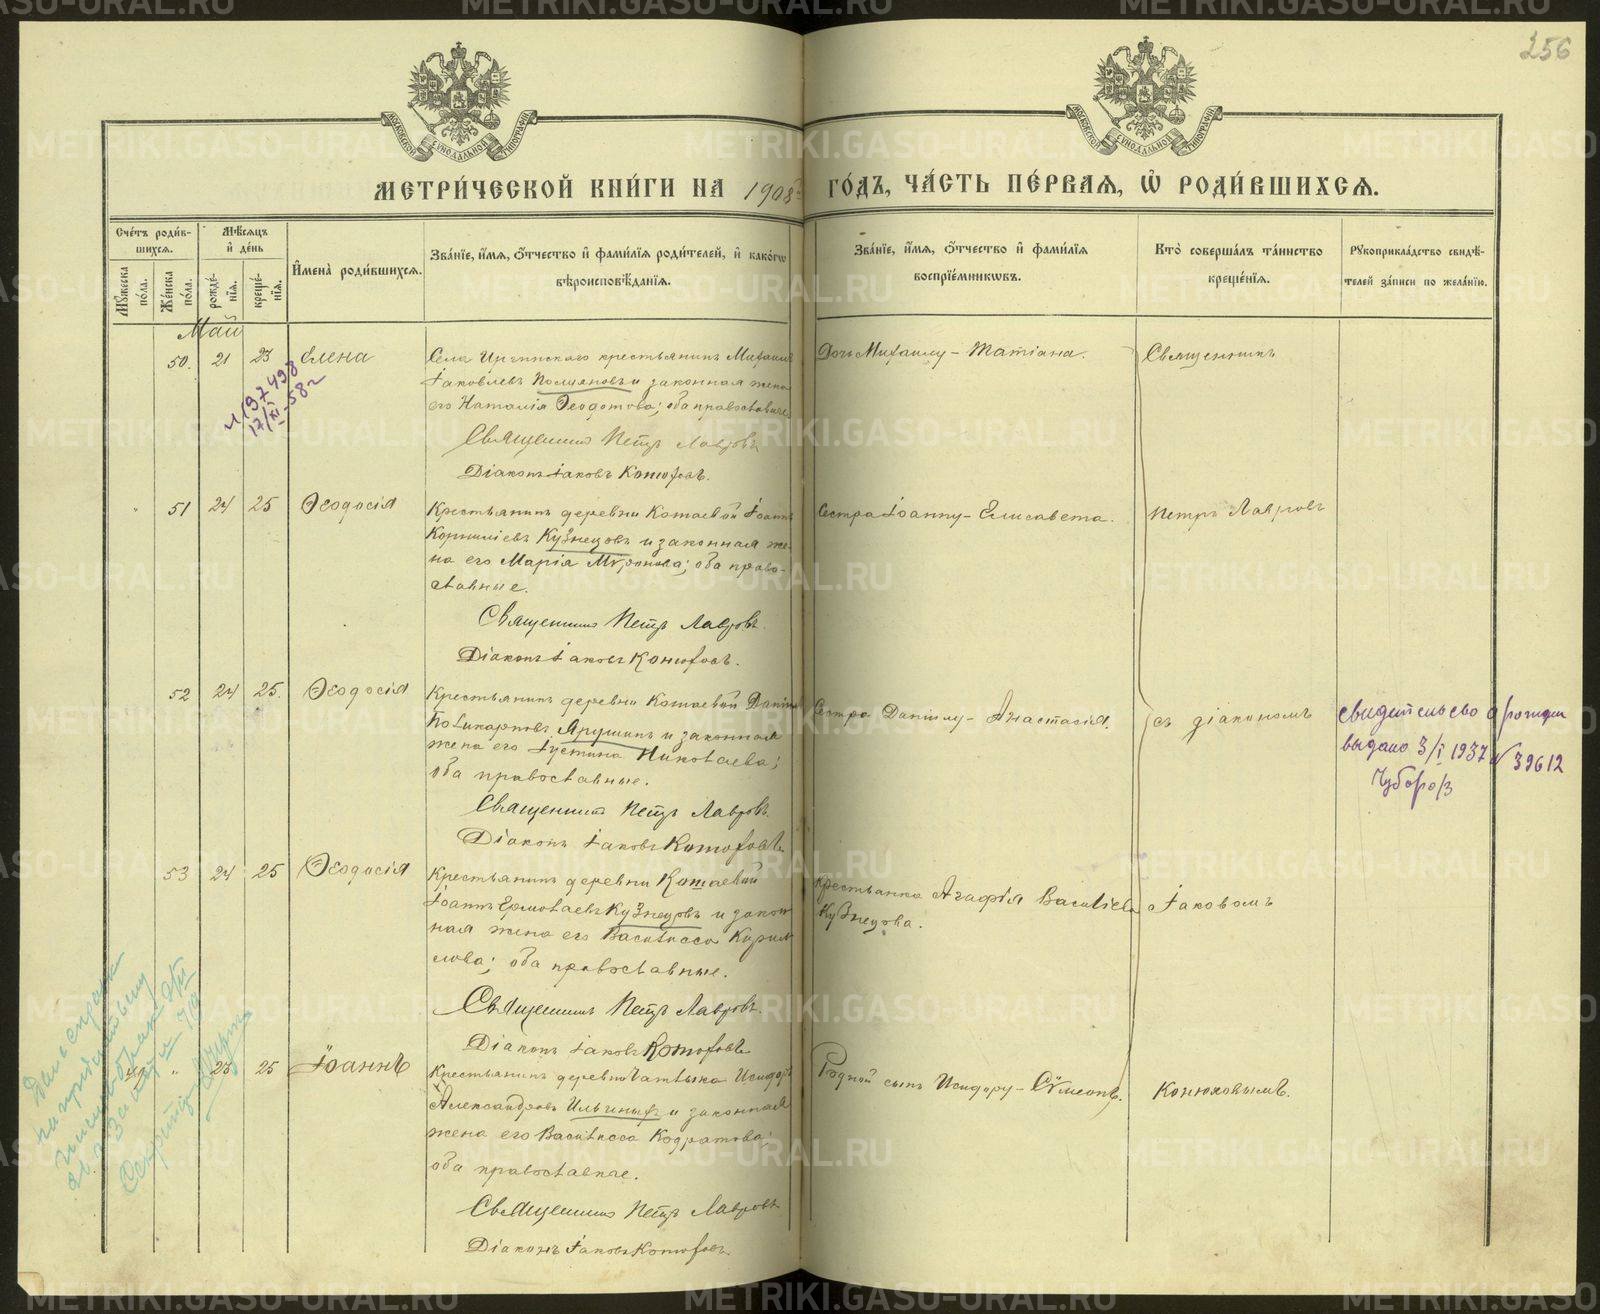 256
МОСКОВСКОЙ СѴНОДАЛЬНОЙ ТИПОГРАФІИ
МОСКОВСКОЙ СѴНОДАЛЬНОЙ ТИПОГРАФІИ
МЕТРИ́ЧЕСКОЙ КНИ́ГИ НА 1908 ГО́ДЪ, ЧА́СТЬ ПЕ́РВАЯ, Ѡ҆ РОДИ́ВШИХСѦ.
Сче́тъ роди́в-
шихсѧ.
Мꙋ́жеска по́ла.
Же́нска по́ла.
Мѣ́сѧцъ и҆ де́нь
рожде́нїѧ.
креще́нїѧ.
И҆мена̀ роди́вшихсѧ.
Зва́нїе, и҆́мѧ, ѻ҆́тчество и҆ фами́лїѧ роди́телей, и҆ како́гѡ
вѣроисповѣ́данїѧ.
Зва́нїе, и҆́мѧ, ѻ҆́тчество и҆ фами́лїѧ
воспрїе́мникѡвъ.
Кто̀ соверша́лъ та́инство
креще́нїѧ.
Рꙋкоприкла́дство свидѣ́-
телей за́писи по жела́нїю.
Май
50. 21 23 Елена
Села Иргинского крестьянинъ Михаилъ
Іаковлевъ и законная жена
его Наталія Ѳеодотова; оба православные
Священникъ Петръ Лавровъ
Діаконъ Іаковъ Конюховъ.
Дочь Михаилу – Татіана.
Священникъ
№ 197498
17/XI-58 г
" 51 24 25 Ѳеодосія
Крестьянинъ деревни Котаевой Іоаннъ
Корниліевъ Кузнецовъ и законная же-
на его Марія Миронова; оба право-
славные.
Священникъ Петръ Лавровъ.
Діаконъ Іаковъ Конюховъ.
Сестра Іоанну – Елисавета.
Петръ Лавровъ
52 24 25. Ѳеодосія
Крестьянинъ деревни Котаевой Даніилъ
Поликарповъ Ярушинъ и законная
жена его Іустина Николаева;
оба православные.
Священникъ Петръ Лавровъ.
Діаконъ Іаковъ Конюховъ
Сестра Даніилу – Анастасія.
съ діакономъ
свидетельство о рожден
выдано 3/I 1937 № 39612
53 24 25 Ѳеодосія
Крестьянинъ деревни Котаевой
Іоаннъ Ермолаевъ Кузнецовъ и закон-
ная жена его Василисса Кирил-
лова; оба православные.
Священникъ Петръ Лавровъ.
Діаконъ Іаковъ Конюховъ
Крестьянка Агафія Василіева
Кузнецова.
Іаковомъ
" 23 25 Іоаннъ
Крестьянинъ деревни Исидоръ
Александровъ Ильиныхъ и законная
жена его Василисса Кодратова;
оба православные.
Священникъ Петръ Лавровъ
Діаконъ Іаковъ Конюховъ
Родной сынъ Исидору – Сѵмеонъ.
Конюховымъ.
METRIKI.GASO-URAL.RU